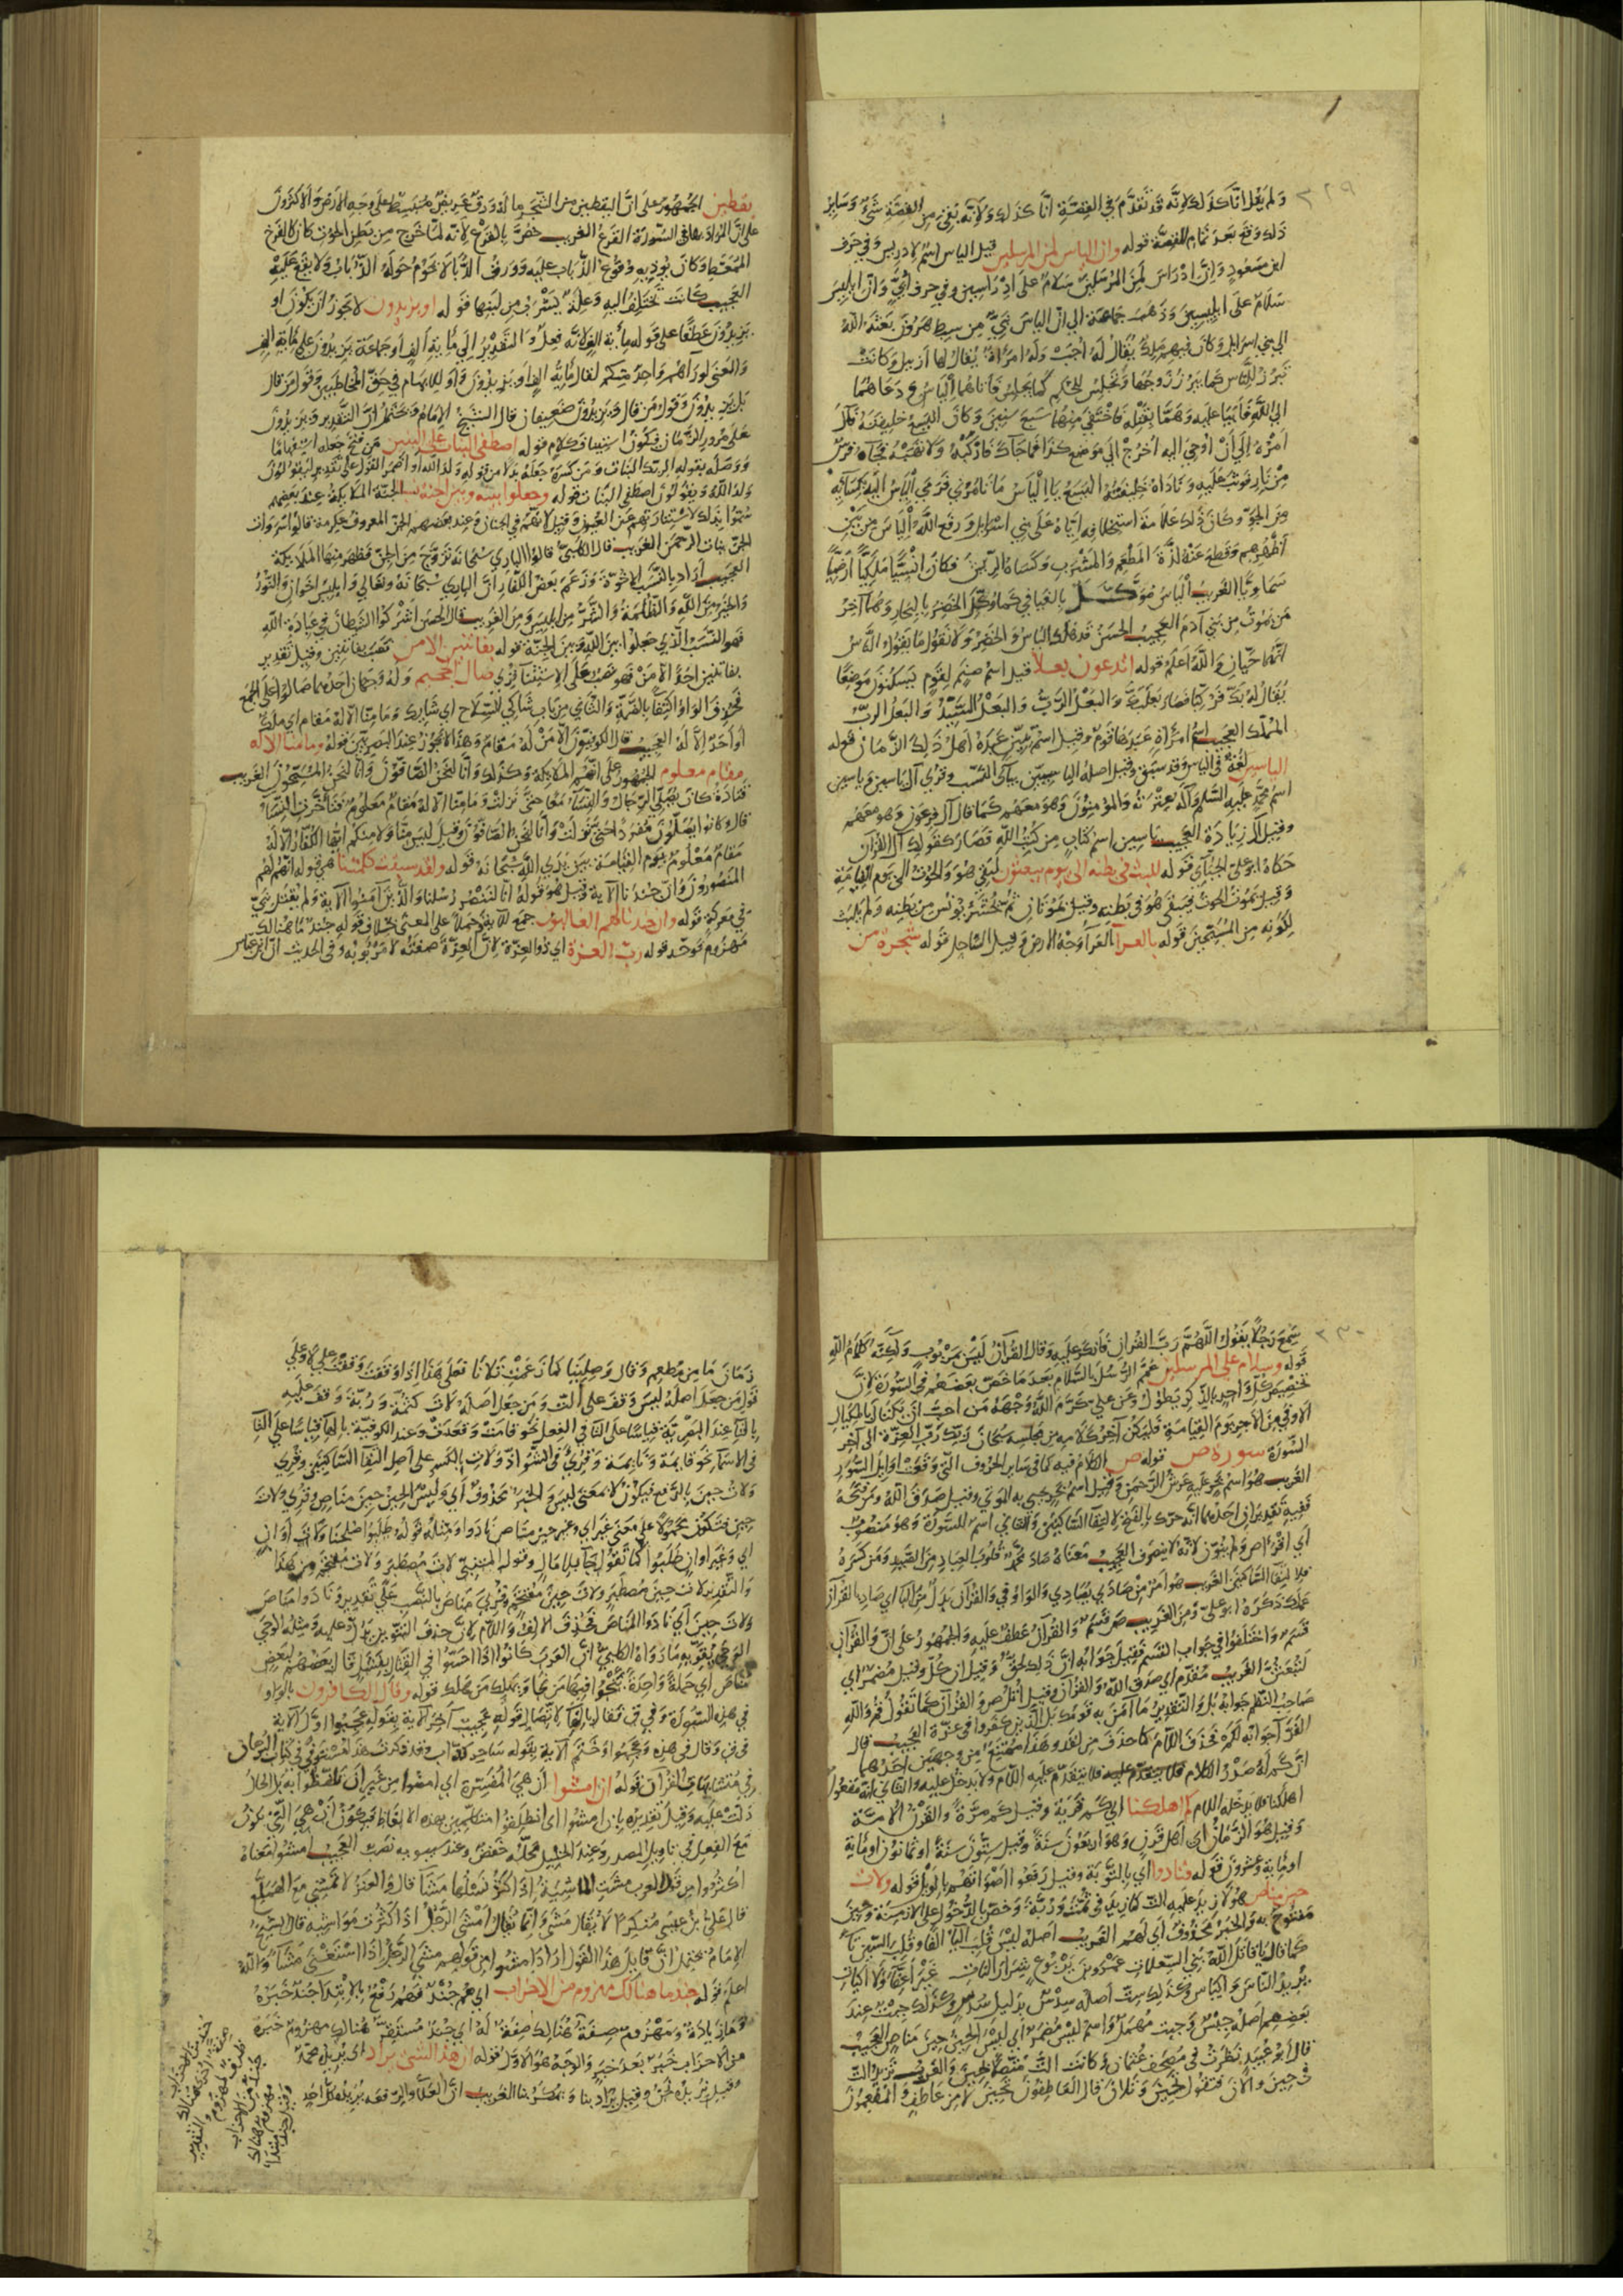 ٣٢٩
وَلم يَقل انّا كَذلك لانّه قد تقدَّم في القِصّةِ انّا كذلك وَلانّه بَقى مِن القصّةِ شئٌ وَسَاير
ذلك وَقع بَعدَ تمام القصّة قوله وان الياس لمن المرسلين قيل الياس اسمٌ لادريس وفي حَرف
ابن مسعودٍ وَانّ ادرَاسَ لمنَ المرسَلينَ سَلامٌ على ادرَاسِين وفي حرف اُبَيّ وَانّ ايليسَ
سَلامٌ على ايليسِينَ وَذهبَ جماعة الي انّ الياسَ نبيٌّ مِن سِبط هرُونَ بَعثه الله
الي بني اسرايل وَكانَ فيهم مَلِكٌ يُقالُ لهُ اجبُ وَلهُ امرَاةٌ يُقالُ لها ازبيل وكانت
تبرُز للنّاس كما يبرُز زوجُها وَتجلِسُ للحُكم كما يجلِسُ فاتاهُما الياسُ وَدعَاهُما
الي اللهِ فابَيا عليه وَهمّا بقتلِه فاختفي مِنهُما سَبعَ سنينَ وَكانَ اليسعُ خليفتَه فآل
امرُهُ الي اَنْ اوحيَ اليه اخرُج الي مَوضع كذا فما جآكَ فاركبْهُ وَلا تهَبْهُ فجآه فرسٌ
مِن نارٍ فوثبَ عليهِ وَنادَاهُ خليفتُهُ اليسَعُ يا الياسُ مَا تامُرُني فرَمي الياسُ اليه كسَآيَه
مِنَ الجوِّ وكانَ ذلك عَلامَة استخلافِه ايّاهُ عَلى بني اسرايل وَرفع اللهُ الياسَ مِن بَين
اظهُرِهِم وَقطع عَنهُ لذّة المَطعَمِ وَالمَشرَبِ وَكسَاهُ الرّيشَ فكانَ انسِيًّا مَلكيًّا ارضيًّا
سَماويًّا الغريبُ الياسُ مُوَكّلٌ بالفيافي كما وُكِّلَ الخضِرُ بالبِحارِ وَهُما آخِرُ
مَن يَموتُ مِن بَني آدمَ العَجيبُ الحسَنُ قد هلَك الياسُ وَالخضِرُ وَلا نقُولُ مَا يَقولُ النّاسُ
انّهما حيّانِ وَاللهُ اعلم قوله اتدعون بعلا قيل اسم صَنمٍ لقومٍ يَسكنُونَ مَوضِعًا
يُقالُ لهُ بَكّ فرُكِّبا فصَارَ بَعلبَكَّ وَالبَعْلُ الرَّبُّ وَالبَعلُ السَّيِّدُ وَالبَعلُ الرَبُّ
المَلِك العجيب اسمُ امرَأةٍ عَبدَهَا قومٌ وَقيل اسمُ تِنّينٍ عَبدَهُ اهلُ ذلك الزَّمَان قوله
الياسين لغةٌ في الياس وقد سَبق وقيل اصلهُ الياسِيِّين بيآى النَّسَب وَقرُي آل ياسين وَياسين
اسمُ محمّد عَليهِ السَّلم وَآلُه عِترَته والمؤمِنُونَ وَهوَ معَهُم كما قال آل فِرعَون وَهو معهُم
وَقيل الآل زيادَة العجيبُ ياسِين اسمُ كتابٍ مِن كُتبِ اللهِ فصَارَ كقولِك آلُ القرآن
حَكاهُ ابو عليّ الجُبّآى قوله للبث في بطنه الي يوم يبعثون لبَقي هُوَ وَالحُوتُ الي يَوم القيامَةِ
وَقيل يَموتُ الحُوت فيبقي هُوَ في بَطنِهِ وَقيل يَمُوتَانِ ثمَّ يُحشَرُ يُونس مِن بَطنِه وَلم يلبَث
لكَونِه مِنَ المُسَبِّحينَ قوله بالعرآ العَرآ وَجهُ الارض وَقيل السّاحِل قوله شجرة من
يقطين الجُمهُورُ على انّ اليَقطينَ مِن الشّجرِ ما لهُ وَرَقٌ عَريضٌ مُنبَسِطٌ على وَجهِ الارضِ وَالاكثرُونَ
على انّ المُرادَ بها في السُّورَة القرعُ الغريب خصَّ بالقرع لانّه لمّا خرجَ مِن بَطنِ الحُوت كان كالفرخ
المُمَعَّطِ وَكانَ يُوذيه وقُوعُ الذّبابِ عليه وَوَرقُ الدُّبّا لا يَحُومُ حَولهُ الذُّبابُ وَلا يقع عَليهِ
العجيب كانت تختلِفُ اليهِ وَعِلةٌ يَشرَبُ مِن لبَنِها قوله او يزيدون لا يَجوز ان يكُونَ او
يزيدُونَ عَطفًا على قوله مِأيةِ الفٍ لانّه فِعلٌ وَالتقديرُ الي مِأيةِ الفٍ او جماعَة يَزيدُونَ على مِاية الفٍ
وَالمعنى لو رَآهُم وَاحِدٌ مِنكم لقال مِأيةُ الفٍ اَو يَزيدُونَ وَاَو للابهام في حَقِّ المخاطَبين وَقولُ مَن قال
بَل يَزيدُونَ وَقولُ مَن قال وَيَزيدُونَ ضَعيفان قال الشيخُ الامَامُ وَيَحتَملُ انّ التقدير وَيزيدُونَ
عَلى مُرورِ الزّمان فيكونُ استينافَ كلامٍ قوله اصطفى البنات على البنين مَن فتَحَ جَعله استِفهامًا
وَوَصَله بقوله الربّك البَنات وَمَن كسَرَهُ جَعَلهُ بَدلًا من قوله وَلدَ الله او اضمَرَ القول على تقدير ليَقولُونَ
وَلدَ اللهُ وَيَقولُونَ اصطفى البنات قوله وجعلوا بينه وبين الجنة نسبا الجنّة المَلايكةُ عِند بَعضِهِم
سُمُّوا بذلك لاستِتَارهِم عَن العُيون وَقيل لانّهُم في الجنان وَعند بعضهم الجنّ المعروف عِكرمة قالوا سَرَوات
الجنّ بَنات الرّحمَن الغريب قال الكلبيّ قالوا الباري سُبحانهُ تزَوَّج مِنَ الجنّ فظهَرَ مِنهَا الملايكة
العجيب ارَادَ بالنَّسَب الاخوَّة وَزَعَم بَعضُ الكفّار انّ الباري سُبحَانَهُ وَتعَالى وَابليسَ اخوَان وَالنُّورُ
وَالخيرُ مِنَ اللهِ وَالظّلمَةُ وَالشّرُّ مِن ابليسَ وَمِنَ الغريب قال الحسَن اشركُوا الشّيطانَ في عِبادَةِ الله
فهوَ النّسَبُ الّذي جَعَلوا بينَ اللهِ وَبَينَ الجِنّة قوله بفاتنين الا من نصب بفاتنين وقيل تقدير
بفاتنين احَدًا الّا مَنْ فهو نَصبٌ عَلى الاستِثنآ وَقرُي صال الجحيم وَلهُ وَجهَان احدُهما صَالُوا على الجمع
فحُذِف الواوُ اكتفآ بالضّمّة وَالثّاني مِن بَاب شاكي السّلاح اي شايِك وَمَا منّا الّا لهُ مَقام اي مَلكٌ
او احَدٌ الّا لهُ العَجيب قال الكوفيّون الّا مَنْ لَهُ مَقامٌ وَهذا لا يجُوزُ عِندَ البصريّين قوله وما منا الا له
مقام معلوم الجُمهور على انّهُم المَلايكة وَكذلك وَانّا لنحنُ الصّافُّونَ وَانّا لنَحنُ المُسَبِّحُونَ الغريب
قتادةُ كانَ يُصَلّي الرّجالُ وَالنّسَآء مَعًا حتّى نزلت وَمَا مِنّا الّا لهُ مَقامٌ مَعلومٌ فتأخَّرَت النّسَآءُ
قال وكانُوا يُصَلّونَ مُفرَدًا حتّى نزلت وَانّا لنَحنُ الصّافّونَ وَقيل لَيسَ مِنّا وَلا منكُم ايّها الكفّار الّا لهُ
مَقامٌ مَعلُومٌ يَوم القيَامَة بَينَ يَدَي اللهِ سُبحَانهُ قوله ولقد سبقت كلمتنا هي قوله انّهم لهُم
المنصُورونَ وَانّ جُندَنا الآية وَقيل هُوَ قوله انّا لنَنصُر رُسُلنا وَالّذينَ آمَنُوا الآية وَلم يُقتل نبيٌّ
في مَعركةٍ قوله وان جندنا لهم الغالبون جمع للآية حَملًا على المعنى بخلاف قوله جندٌ مَا هُنالك
مَهزُومٌ فوحّد قوله رب العزة اي ذُو العِزّة لانّ العِزّة صفتُه لا مَربُوبهُ وَفي الحديث انّ ابن عبّاس
٣٣٠
سَمِعَ رَجُلًا يَقُولُ اللّهُمَّ رَبَّ القُرانِ فأنكَرَ عليه وَقال القُرآنُ لَيْسَ بمَربُوبٍ وَلكنّهُ كلامُ اللهِ
قوله وسلام على المرسلين عَمَّ الرُّسُلَ بالسّلام بَعدَ مَا خصّ بَعضَهُم في السُّورَة لانّ
تخصيصَ كلِّ وَاحِدٍ بالذّكرِ يَطول وَعَن عليّ كرَّمَ اللهُ وَجهَهُ مَن احبَّ ان يكتالَ بالمِكيالِ
الاوفي مِنَ الاجرِ يَوم القِيامَةِ فليكن آخِرُ كلامِه مِن مَجلِسِه سُبحانَ رَبّك رَبّ العِزّة الى آخِر
السُّورَة سورة ص قوله ص الكلامُ فيه كما في سَاير الحُرُوف الّتي وَقعت اوايل السُّوَر
الغريب هُوَ اسمُ بَحرٍ عليهِ عَرشُ الرّحمَن وَقيل اسمُ بَحرٍ يحيي به الموتي وقيل صَدقَ اللهُ وَمَن فتحَهُ
ففيه تقديران احَدُهُما انّه حرّك بالفتح لالتقآ السّاكنَين وَالثاني اسمُ السُّورَة وَهوَ مَنصُوبٌ
اي اقرَأ ص وَلم يُنوّن لانّه لا ينصرف العجيب معناهُ صَادَ محمّدٌ قلُوبَ العِبادِ مِنَ الصّيدِ وَمَن كسَرَهُ
فلالتقآ السّاكنين الغريب هُوَ امرٌ مِنْ صَادَي يُصَادي وَالواوُ في وَالقرآن بَدَلٌ مِنَ البَآ اي صَادِ بالقرآن
عَمَلَك ذكرَهُ ابو عليّ وَمِنَ الغريب صَ قسَمٌ وَالقُرآن عَطفٌ عليه وَالجمهُورُ على انّ وَالقُرآن
قسَمٌ وَاختلفُوا في جَواب القسَم فقيل جَوابُه انّ ذلك لحقّ وَقيل ان كلٌّ وَقيل مُضمَرٌ اي
لتُبعثنّ الغريب مُقدَّم اي صَدقَ اللهُ وَالقُرآن وقيل اتلُ ص وَالقُرآن كما تقُولُ قُم وَالله
صَاحِبُ النّظم جَوابه بَل وَالتقديرُ مَا آمَنَ به قومُك بَل الّذين كفرُوا في عِزّة العجيب قال
الفرّآ جَوابه لكم فحَذف اللام كما حذفَ مِن لقد وَهذا مُمتَنِعٌ مِن وَجهَين احَدُهُما
انّ كم لهُ صَدرُ الكلام فلا يتقدّم عليه اللام وَلا يدخُل عليه وَالثّاني انّه مَفعُولُ
اهلكنا فلا يَدخلُه اللام كم اهلكنا اي كم قريَةٍ وَقيل كم مَرّةً وَالقَرنُ الامّةُ
وَقيل هُوَ الزّمانُ اي اهل قرنٍ وَهو اربَعُونَ سَنةً وَقيل سِتُّونَ سَنةً او ثمانُون او مِأيةٌ
او مِأيةٌ وَعشرون قوله فنادوا اي بالتَّوبَة وَقيل رَفعُوا اصْوَاتهُم بالوَيل قوله ولات
حين مناص هُوَ لا زيدَ عليه التّآ كما زيدَ في ثُمَّتَ وَرُبَّةَ وَخصّ بالدّخُول على الازمِنةِ وَحينَ
مَفتُوح به وَالخبرُ مَحذُوف اي لهُم الغريب اصلهُ لَيْسَ قُلبَ اليآ الفًا وَقُلِبَ السّين تآءً
كما قال يا قاتلَ اللهُ بَني السِّعلاتِ عَمرَو بنَ يَربُوعٍ شِرَارَ النّاتِ غَيرَ اعِفّآ وَلا اكياتِ
يُريدُ النّاسَ وَاكياسٍ وَكذلك سِت اصله سِدسٌ بدَليل سُدسٌ وَكذلك جِبت عِندَ
بَعضِهم اصلهُ جِبسٌ وَاسم ليسَ مُضمَرٌ اي ليسَ الحينُ حينَ مَناصٍ العجيب
قال ابو عُبَيدٍ نظرتُ في مُصحَفِ عُثمانَ فكانت التّآ مُتّصِلةً بحينَ وَالعَرب تزيد التّآ
في حينَ وَالآن فتقُول تَحينَ وَتَلان قال العَاطِفُونَ تَحينَ لا مِن عَاطفٍ وَالمُطعِمُونَ
زمَانَ مَا مِن مُطعِمٍ وَقال وَصِلينا كما زعَمْتِ تَلانا فعَلى هذا اذا وَقفت وَقفتَ على لا وَعلى
قول مَن جعَل اصله ليسَ وَقف على التّآ وَمَن جعَل اصله لات كثُمّةَ وَرُبّة وَقف عليه
بالتّآ عِندَ البَصريّة قياسًا على التّا في الفِعل نحو قامَت وَقعَدَت وَعند الكوفيّة بالهآ قياسًا على التّآ
في الاسمَآ نحو قايمَة وَنايمَة وَقُرِيَ في الشّواذّ وَلاتِ بالكسر على اصل التقآ السّاكنَين وقُري
وَلات حينُ بالرّفع فيكُونُ لا بمعنى ليسَ وَالخبرُ مَحذُوفٌ اي وَليسَ الحينُ حينَ مَناصٍ وَقُري وَلاتَ
حينِ فتكُون مَحمُولًا على معنى غير اي وَغيرَ حينِ مَناصٍ نادَوا وَمِثالُه قوله طَلبُوا صُلحَنا وَلاتَ اوانٍ
اي وَغَيرَ اوانٍ طَلبُوا كما تقُول جآ بلا مَالٍ وَقول المُتَنبّي لاتَ مُصطَبرٍ وَلاتَ مُقتحَمٍ مِن هذا
وَالتقدير لات حينَ مُصطَبرٍ وَلاتَ حينَ مُقتحَمٍ وَقرُيَ مَناصَ بالنّصب على تقدير وَنادَوا مَناصَ
وَلاتَ حينَ اي نادَوا المَناصَ فحُذِفَ الالِفُ وَاللّام لانّ حذف التّنوين يَدلُّ عليه وَمِثله الوَحي
الوَحي يُقوّيه مَا رَوَاهُ الكلبيّ انّ العَربَ كانُوا اذا احَسُّوا في القتال بفشلٍ قال بَعضُهُم لبَعضٍ
مَناصَ اي حَملةً وَاحِدةً يَنجُوا فيها مَن نجا وَيَهلك مَن هلك قوله وقال الكافرون بالوَاو
في هذه السّورَة وَفي ق فقال بالفآ لاتّصَال قوله عَجيبٌ آخِرَ الآيةِ بقوله عَجِبُوا اوَّلَ الآيةِ
في ق وَقال في هذِه وَعَجِبُوا وَختم الآيةَ بقوله سَاحِرٌ كذّاب وقد ذكرت هذا مُستوفى في كتاب البُرهان
في مُتشابِهات القُرآن قوله ان امشوا ان هيَ المُفسِّرَة اي امشُوا مِن غَير ان تلفظُوا به بَل الحالُ
دَلّت عليه وَقيل تقديره بان امشوا اي انطَلقُوا مُتكلِّمين بهذه الالفاظ فيكونُ ان هيَ الّتي تكُونُ
مَعَ الفِعل في تاويل المصدر وَعِندَ الخليل محلّه خَفضٌ وَعند سيبويه نصب العجيب امشُوا مَعناهُ
اكثرُوا مِن قول العرب مَشت الماشِيَة اذا كثُرَ نَسلُها مَشآ قال وَالعَنزُ لا تَمشي مَعَ الهَمَلَّعِ
قال عليّ بن عيسى مُنكِرًا لا يُقالُ مَشي وَانّما يُقالُ امشي الرّجُل اذا كثُرت مَوَاشيه قال الشّيخ
الامَامُ يَحتَملُ انّ قايلَ هذا القول ارَادَ امشُوا مِن قولهم مشي الرّجُل اذا استَغنى مَشآءً وَاللهُ
اعلم قوله جند ما هنالك مهزوم من الاحزاب اي هُم جُندٌ فهُم رَفعٌ بالابتدآ جندٌ خَبَرُهُ
وَمَا زيَادَة وَمَهزُومٌ صِفَةٌ هُنالك صِفَةٌ لهُ اي جُندٌ مُستَقِرٌّ هُنالك مَهزُومٌ خَبَرُهُ
مِنَ الاحزابِ خبرٌ بَعدَ خبَرٍ وَالوَجهُ هُوَ الاوّلُ قوله ان هذا الشئ يراد اي يُريدُ محمّدٌ
وَقيل يُريدُهُ نحنُ وَقيل يُرادُ بنا وَيُمكَرُ بنا الغريب انّ العُلآ وَالرّفعَة يُريدُهُ كلُّ احدٍ